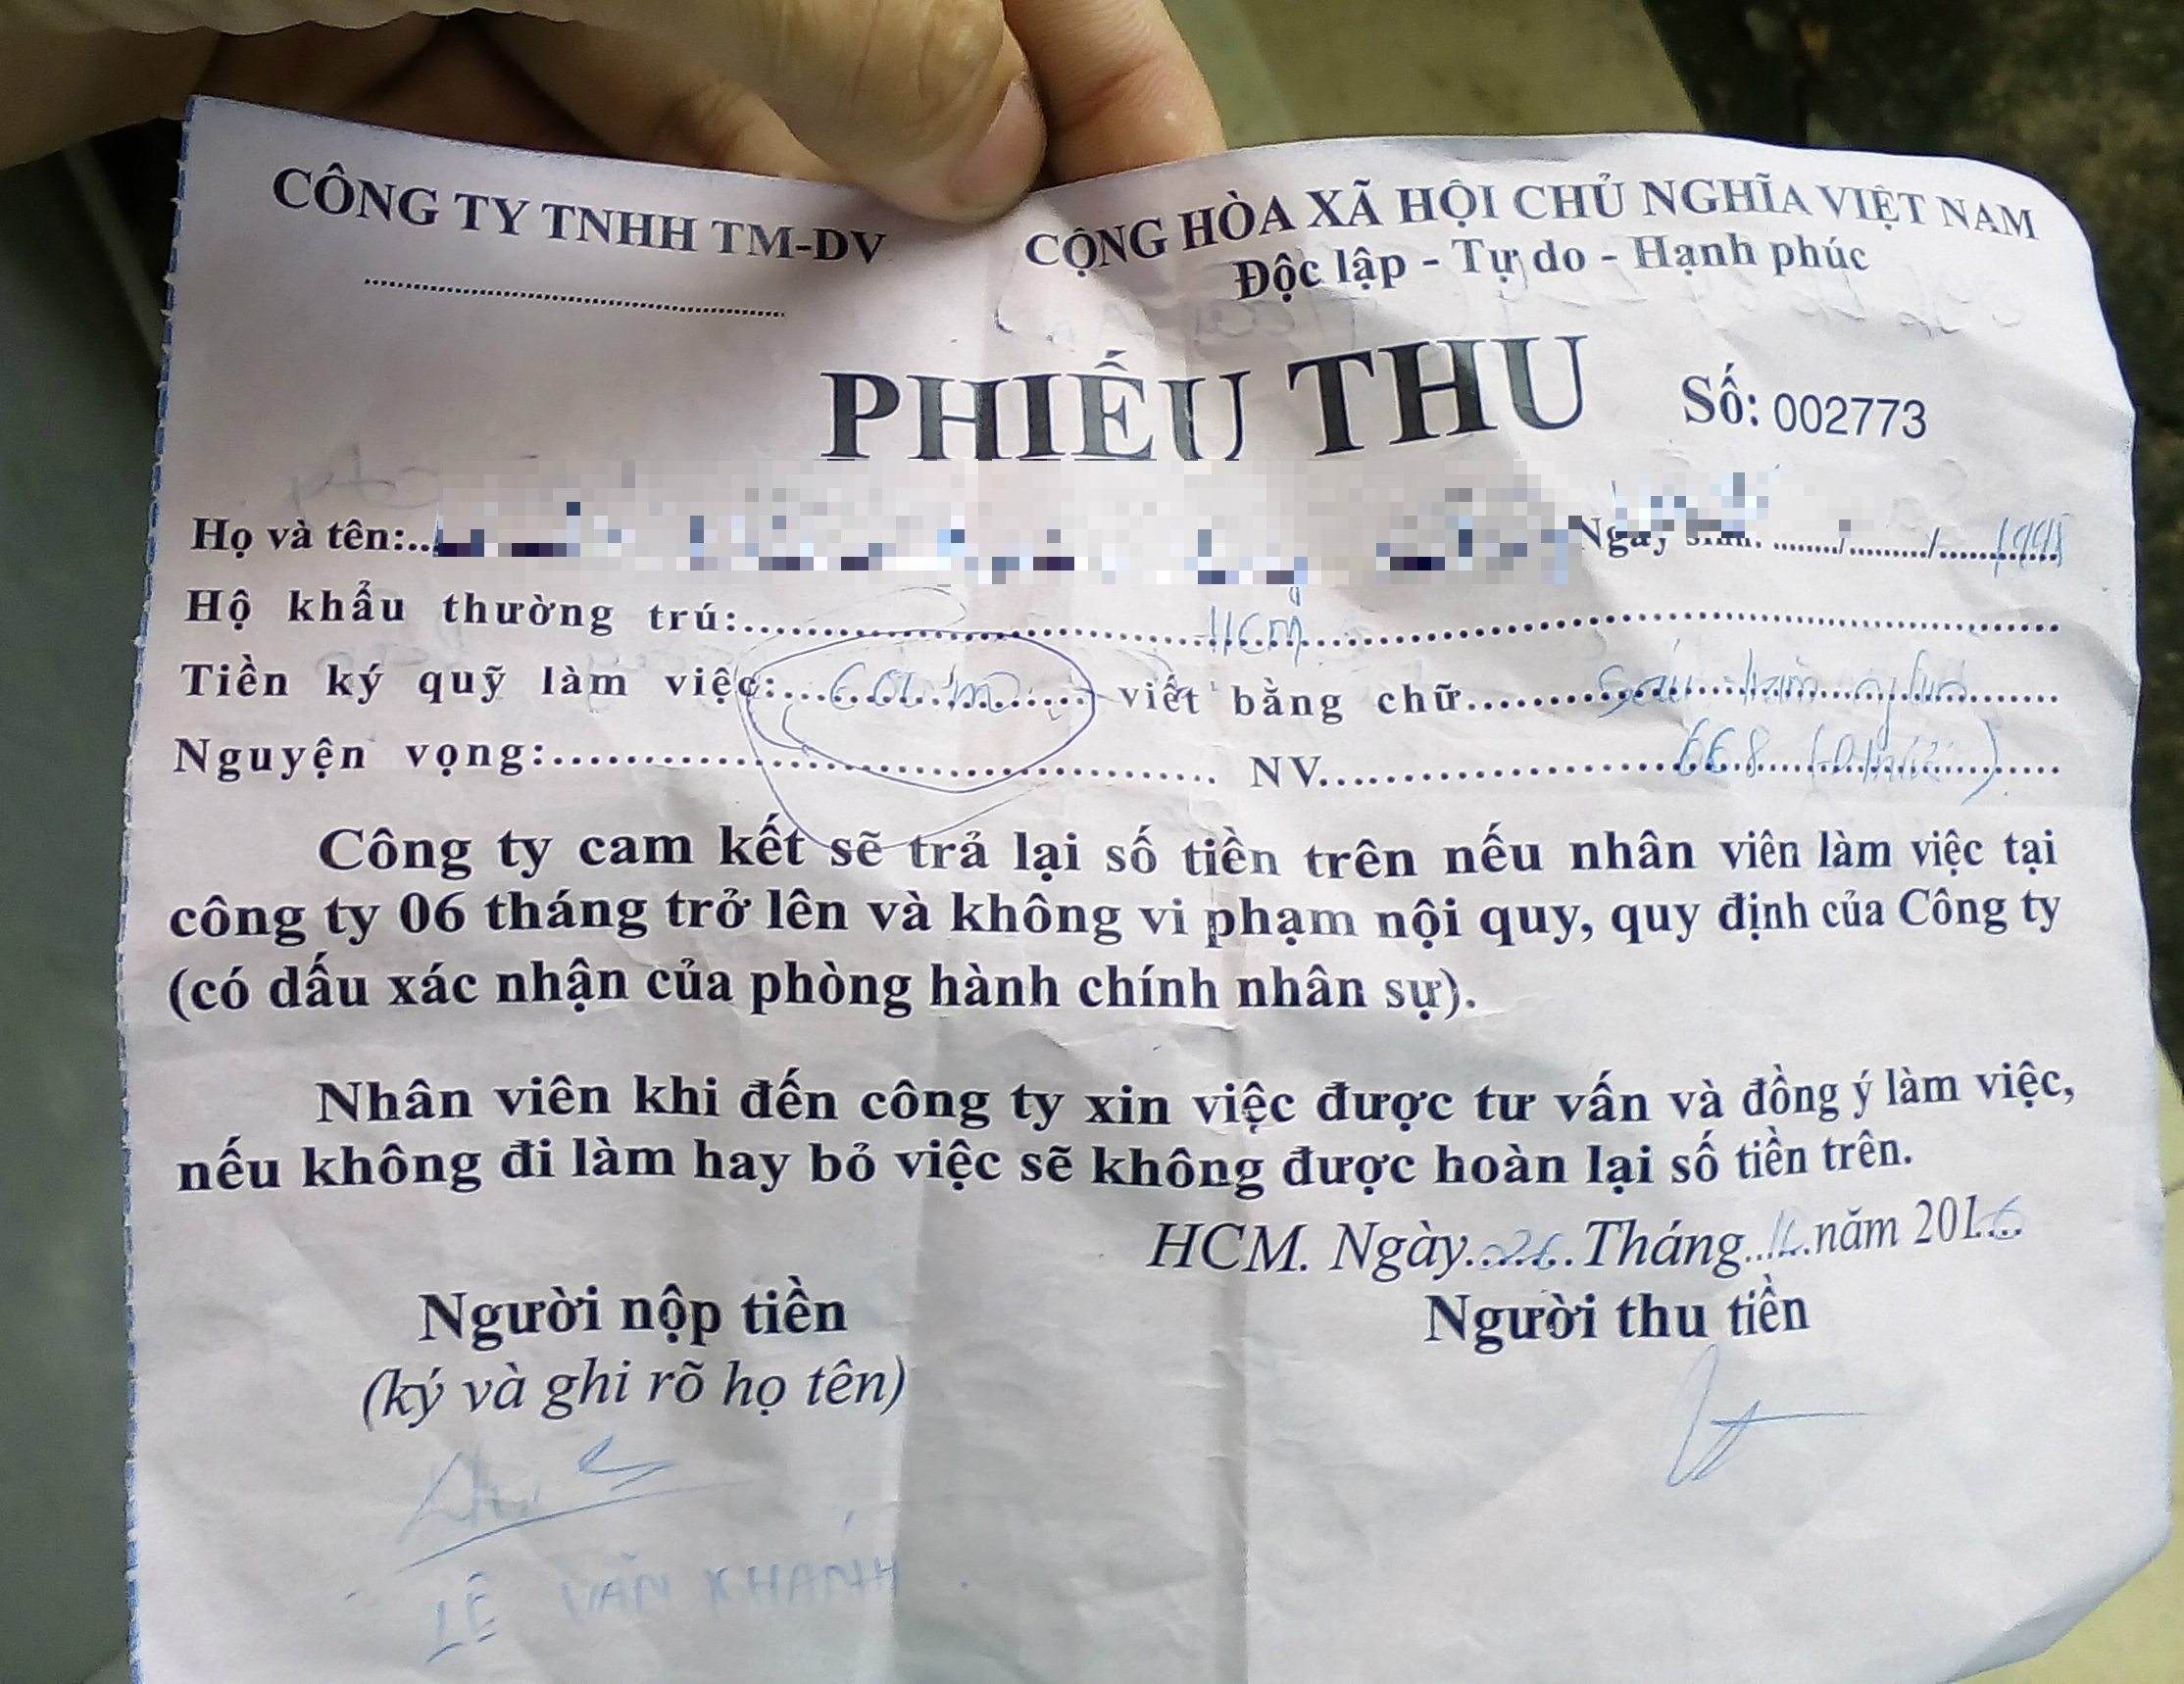 CÔNG TY TNHH TM-DV
CỘNG HÒA XÃ HỘI CHỦ NGHĨA VIỆT NAM
Độc lập - Tự do - Hạnh phúc
PHIẾU THU Số: 002773
Họ và tên:.. Ngày sinh: ......../........./.........
Hộ khẩu thường trú: HCM
Tiền ký quỹ làm việc: viết bằng chữ Sáu trăm nghìn
Nguyện vọng: NV 668
Công ty cam kết sẽ trả lại số tiền trên nếu nhân viên làm việc tại
công ty 06 tháng trở lên và không vi phạm nội quy, quy định của Công ty
(có dấu xác nhận của phòng hành chính nhân sự).
Nhân viên khi đến công ty xin việc được tư vấn và đồng ý làm việc,
nếu không đi làm hay bỏ việc sẽ không được hoàn lại số tiền trên.
HCM. Ngày 26 Tháng 12 năm 2016
Người nộp tiền Người thu tiền
(ký và ghi rõ họ tên)
LÊ VĂN KHÁNH